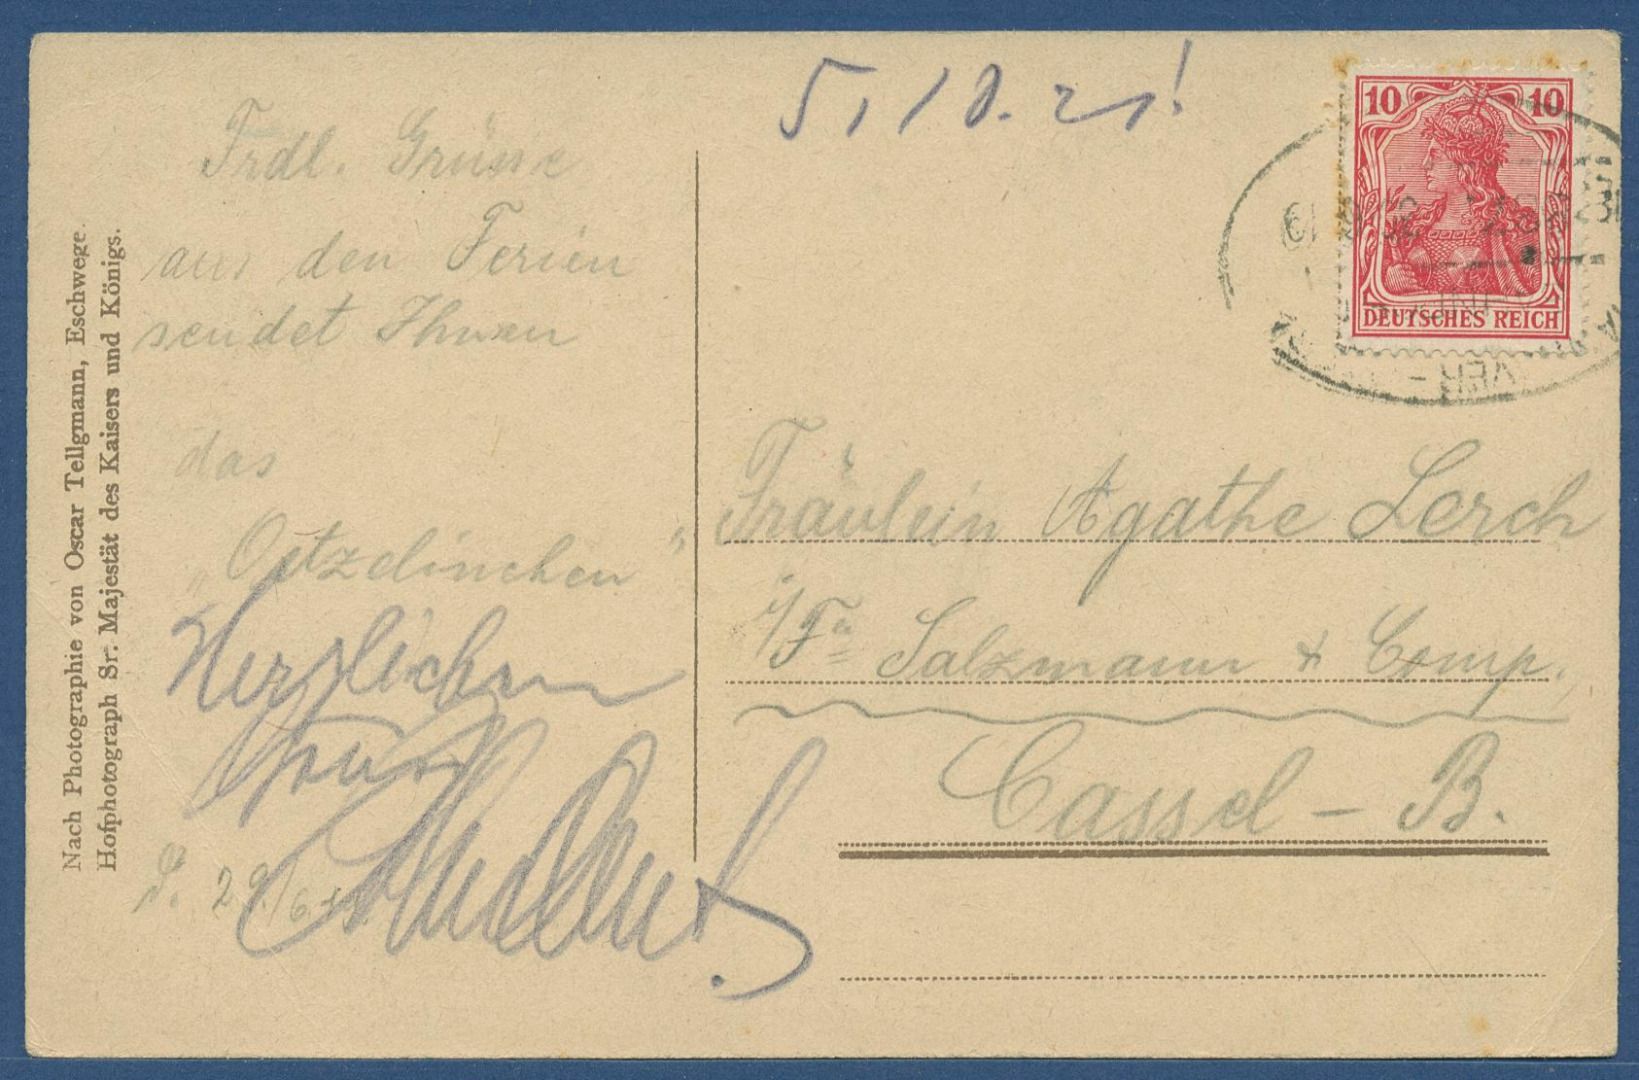 5./10. 21!
Frdl. Grüsse
aus den Ferien
sendet Ihnen
das
"Oetzelinchen"
Herzlichen
Gruß
29/6.
Nach Photographie von Oscar Tellgmann, Eschwege.
Hofphotograph Sr. Majestät des Kaisers und Königs.
10 10
DEUTSCHES REICH
VER -
Fräulein Agathe Lerch
i/Fa Salzmann & Comp.
Cassel - B.